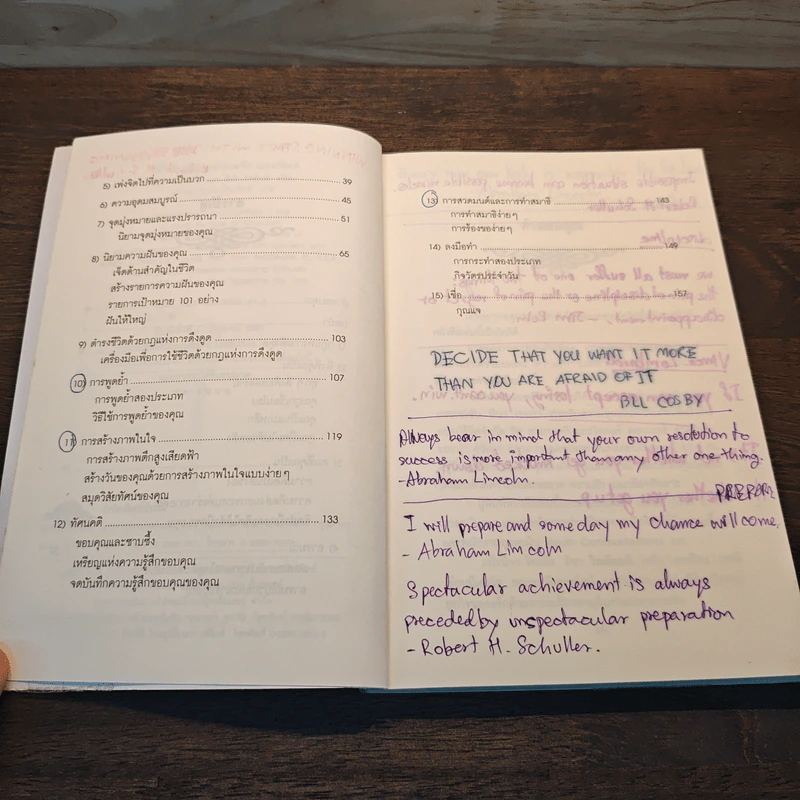 5) เพ่งจิตไปที่ความเป็นบวก ........ 39
6) ความอุดมสมบูรณ์ ........ 45
7) จุดมุ่งหมายและแรงปรารถนา ........ 51
นิยามจุดมุ่งหมายของคุณ
8) นิยามความฝันของคุณ ........ 65
เจ็ดด้านสำคัญในชีวิต
สร้างรายการความฝันของคุณ
รายการเป้าหมาย 101 อย่าง
ฝันให้ใหญ่
9) ดำรงชีวิตด้วยกฎแห่งการดึงดูด ........ 103
เครื่องมือเพื่อการใช้ชีวิตด้วยกฎแห่งการดึงดูด
10) การพูดย้ำ ........ 107
การพูดย้ำสองประเภท
วิธีใช้การพูดย้ำของคุณ
11) การสร้างภาพในใจ ........ 119
การสร้างภาพตึกสูงเสียดฟ้า
สร้างวันของคุณด้วยการสร้างภาพในใจแบบง่าย ๆ
สมุดวิสัยทัศน์ของคุณ
12) ทัศนคติ ........ 133
ขอบคุณและซาบซึ้ง
เหรียญแห่งความรู้สึกขอบคุณ
จดบันทึกความรู้สึกขอบคุณของคุณ
13) การสวดมนต์และการทำสมาธิ ........ 143
การทำสมาธิง่าย ๆ
การร้องของ่าย ๆ
14) ลงมือทำ ........ 149
การกระทำสองประเภท
กิจวัตรประจำวัน
15) เชื่อ ........ 157
กุญแจ
DECIDE THAT YOU WANT IT MORE
THAN YOU ARE AFRAID OF IT
BILL COSBY
Always bear in mind that your own resolution to
success is more important than any other one thing.
- Abraham Lincoln.
PREPARE
I will prepare and some day my chance will come.
- Abraham Lincoln
Spectacular achievement is always
preceded by unspectacular preparation
- Robert H. Schuller.